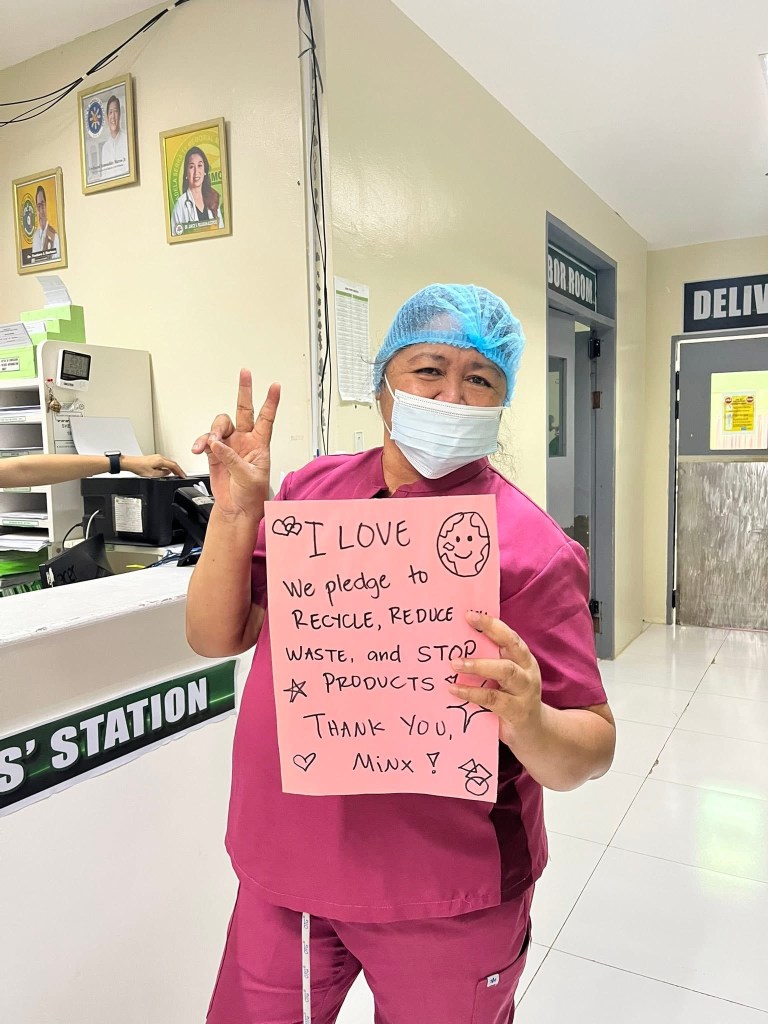 BOR ROOM
DELIV
I LOVE
We pledge to
RECYCLE, REDUCE
WASTE, and STOP
PRODUCTS
THANK YOU,
MINX!
S' STATION